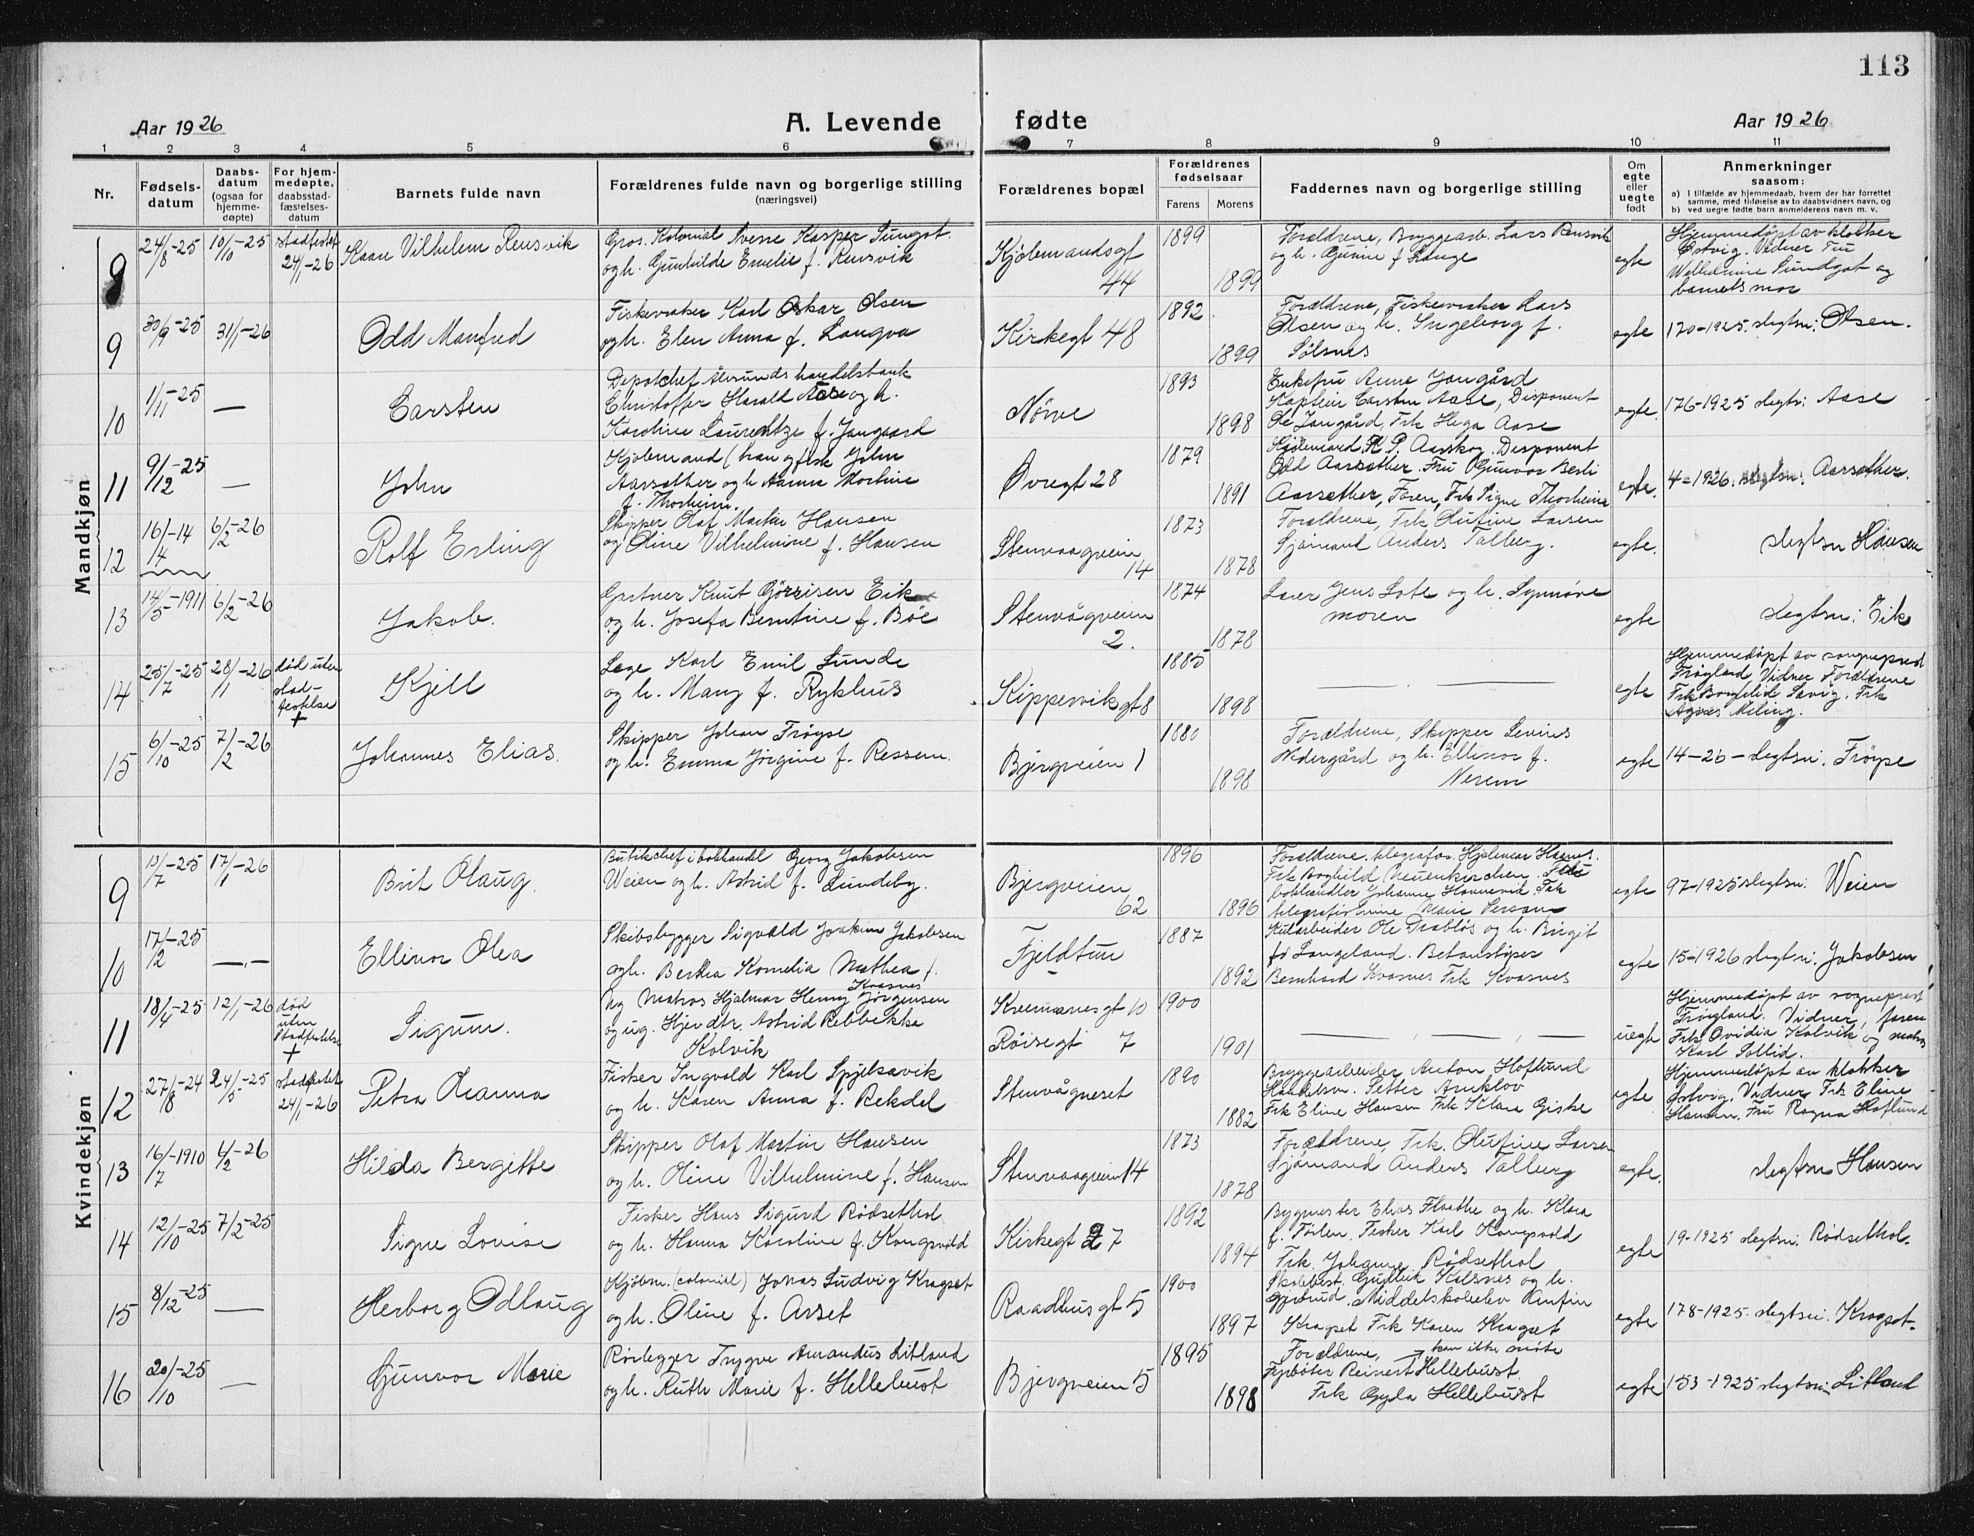 113
Aar 1926
A. Levende fødte
Aar 1926
1 2 3 4 5 6 7 8 9 10 11
Nr.
Fødsels-
datum
Daabs-
datum
(ogsaa for
hjemme-
døpte)
For hjem-
medøpte,
daabsstad-
fæstelses-
datum
Barnets fulde navn
Forældrenes fulde navn og borgerlige stilling
(næringsvei)
Forældrenes bopæl
Forældrenes
fødselsaar
Farens Morens
Faddernes navn og borgerlige stilling
Om
egte
eller
uegte
født
Anmerkninger
saasom:
a) I tilfælde av hjemmedaab, hvem der har forrettet
samme, med tilføielse av to daabsvidners navn, og
b) ved uegte fødte barn anmelderens navn m. v.
Mandkjøn
8
24/8-25
10/10-25
stadfestet
24/1-26
Kaare Vilhelm Rensvik
Gros. Kolonial Sverre Kasper Sundgot
og h. Gunhilde Emelie f. Rensvik
Kjølemandsgt
44
1899
1899
Forældrene, Bryggearb. Lars Rensvik
og h. Gunne f Lange
egte
Hjemmedøpt av klokker
Østvig. Vidner Fru
Wilhelmine Sundgot og
barnets mor
9
30/9-25
31/1-26
Odd Manfred
Fiskevraker Karl Oskar Olsen
og h. Elen Anna f. Langva
Kirkegt 48
1892
1899
Forældrene, Fiskevraker Lars
Olsen og h. Ingeborg f.
Sølsnes
egte
170-1925. slegtsn: Olsen.
10
1/11-25
—
Carsten
Depotchef Ålesunds handelsbank
Christoffer Harald Aase og h.
Karoline Laurentze f. Jangaard
Nørve
1893
1898
Enkefru Anne Jangård
Kaptein Carsten Aase, Disponent
Ole Jangård, Frk Helga Aase
egte
176-1925 slegtsn: Aase
11
9/12-25
—
John
Kjøbmand (hang fisk John
Aarsæther og h Aanna Martine
f. Thorheim.
Øvregt 28
1879
1891
Kjøbmand R P. Aarskog. Disponent
Odd Aarsæther. Fru Gunvor Berli
Aarsæther, Faren, Frk Signe Thorheim
egte.
4-1926. slegtsn: Aarsæther.
12
16/4-14
6/2-26
Rolf Erling
Skipper Olaf Martin Hansen
og Oline Vilhelmine f. Hansen
Stenvaagveien
14
1873
1878
Forældrene, Frk Olufine Larsen
Sjømand Anders Talberg.
egte.
slegtsn Hansen
13
14/5-1911
6/2-26
Jakob.
Gartner Knut Gørrisen Eik
og h. Josefa Berntine f. Bøe
Stenvågveien
2.
1874
1878
Lærer Jens Lote og h. Synnøve
moren
egte
slegtsn: Eik
14
25/7-25
28/1-26
død uten
stad-
festelse
+
Kjell
Læge Karl Emil Lunde
og h. Mary f. Rykhus
Kippervikgt 8
1885
1898
— — —
egte
Hjemmedøpt av sogneprest
Frøgland, Vidner Forældrene
Frk Borghild Savig. Frk
Agnes Meling.
15
6/10-25
7/2-26
Johannes Elias.
Skipper Johan Frøyse
og h. Emma Jørgine f. Ressem.
Bjergveien 1
1880
1898
Forældrene, Skipper Levinus
Nedergård og h. Ellinor f.
Nerem
egte
14-26-slegtsn: Frøyse
Kvindekjøn
9
13/7-25
17/1-26
Brit Olaug.
Butikchef i bokhandel Georg Jakobsen
Weien og h. Astrid f. Lundeby.
Bjergveien
62
1896
1896
Forældrene. telegrafor. Hjalmar Hagnes.
Frk Borghild Neuenkirchen. Fru
bokhandler Johanne Hannevid. Frk
telegrafistinne Marie Person
egte
97-1925 slegtsn: Weien
10
17/12-25
—.—
Ellinor Olea
Skibsbygger Sigvald Joakim Jakobsen
og h. Berthea Kornelia Mathea f.
Kvasnes
Fjeldtun
1887
1892
Kularbeider Ole Drabløs og h. Birgit
fø Langeland. Betonstøper
Bernhard Kvasnes Frk Kvasnes
egte
15-1926 slegtsn: Jakobsen
11
18/4-25
12/1-26
død
uten
Stadfestelse
+
Sigrun.
Ug Matros Hjalmar Henry Jørgensen
og ug. Hjv dtr. Astrid Rebbekka
Kolvik
Kvernanesgt 10
Røisegt 7
1900
1901
— — —
uegte
Hjemmedøpt av sogneprest
Frøgland. Vidner, faren
Frk Ovidia Kolvik og matros
Karl Sollid.
12
27/8-24
24/5-25
stadfestet
24/1-26
Petra Oleanna
Fisker Ingvald Karl Spjelkavik
og h. Karen Anna f. Rekdal
Stenvågneset
1890
1882
Bryggearbeider Anton Hoflund
Handelsm. Petter Amkløv
Frk Eline Hansen Frk Klara Giske
egte
Hjemmedøpt av klokker
Østvig. Vidner Frk Eline
Hansen, Fru Ragna Hoflund
13
16/7-1910
6/2-26
Hilda Bergitte
Skipper Olaf Martin Hansen
og h. Oline Vilhelmine f. Hansen
Stenvaagveien 14
1873
1878
Forældrene, Frk. Olufine Larsen
Sjømand Anders Talberg
egte.
slegtsn Hansen
14
12/10-25
7/2-25
Signe Lovise
Fisker Hans Sigurd Rødsethol
og h. Hanna Karoline f. Kongsvold
Kirkegt 27
1892
1894
Bygmester Elias Flaathe og h. Klara
f. Følen. Fisker Karl Kongsvold
Frk. Johanne Rødsethol
egte
19-1925 slegtsn: Rødsethol.
15
8/12-25
—
Herborg Odlaug
Kjøbm. (colonial) Jonas Ludvig Kragset
og h. Oline f. Arset
Raadhusgt 5
1900
1897
Skolebest. Gudleik Kilsnes og h.
Gjertrud. Middelskoleelev Arnfin
Kragset Frk Karen Kragset
egte
178-1925. slegtsn: Kragset.
16
20/10-25
—
Gunvor Marie
Rørlegger Trygve Amandus Litland
og h. Ruth Marie f. Hellebust
Bjergveien 5
1895
1898
Forældrene, → kan ikke møte
Fyrbøter Reinert Hellebust.
Frk Gyda Hellebust
egte
153-1925 slegtsn: Litland